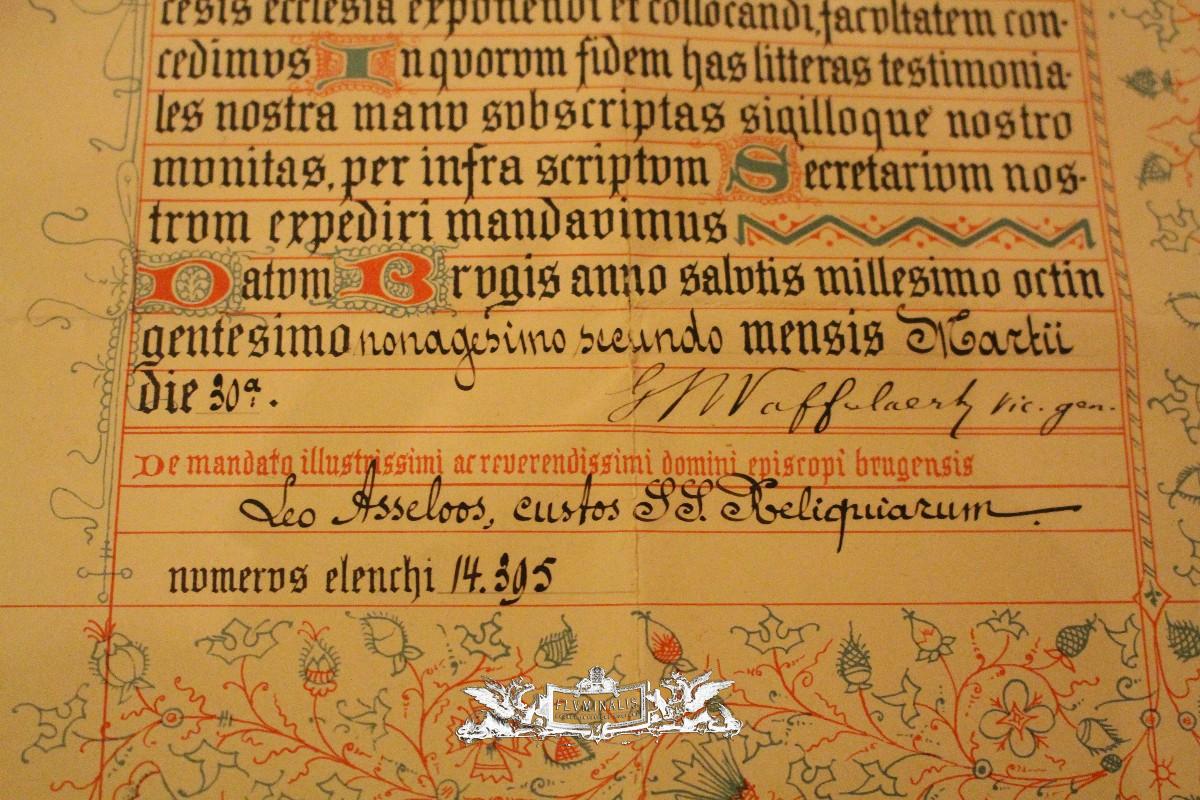 cesis ecclesia exponendi et collocandi, facvltatem con-
cedimvs In qvorvm fidem has litteras testimonia-
les nostra manv svbscriptas sigilloqve nostro
mvnitas, per infra scriptvm Secretarivm nos-
trvm expediri mandavimus
Datvm Brvgis anno salvtis millesimo octin
gentesimo nonagesimo secundo mensis Martii
die 30ª.
G J Waffelaert vic. gen.
De mandato illustrissimi ac reverendissimi domini episcopi brugensis
Leo Asseloos, custos SS. Reliquiarum.
nvmervs elenchi 14.395
FLVMINALIS